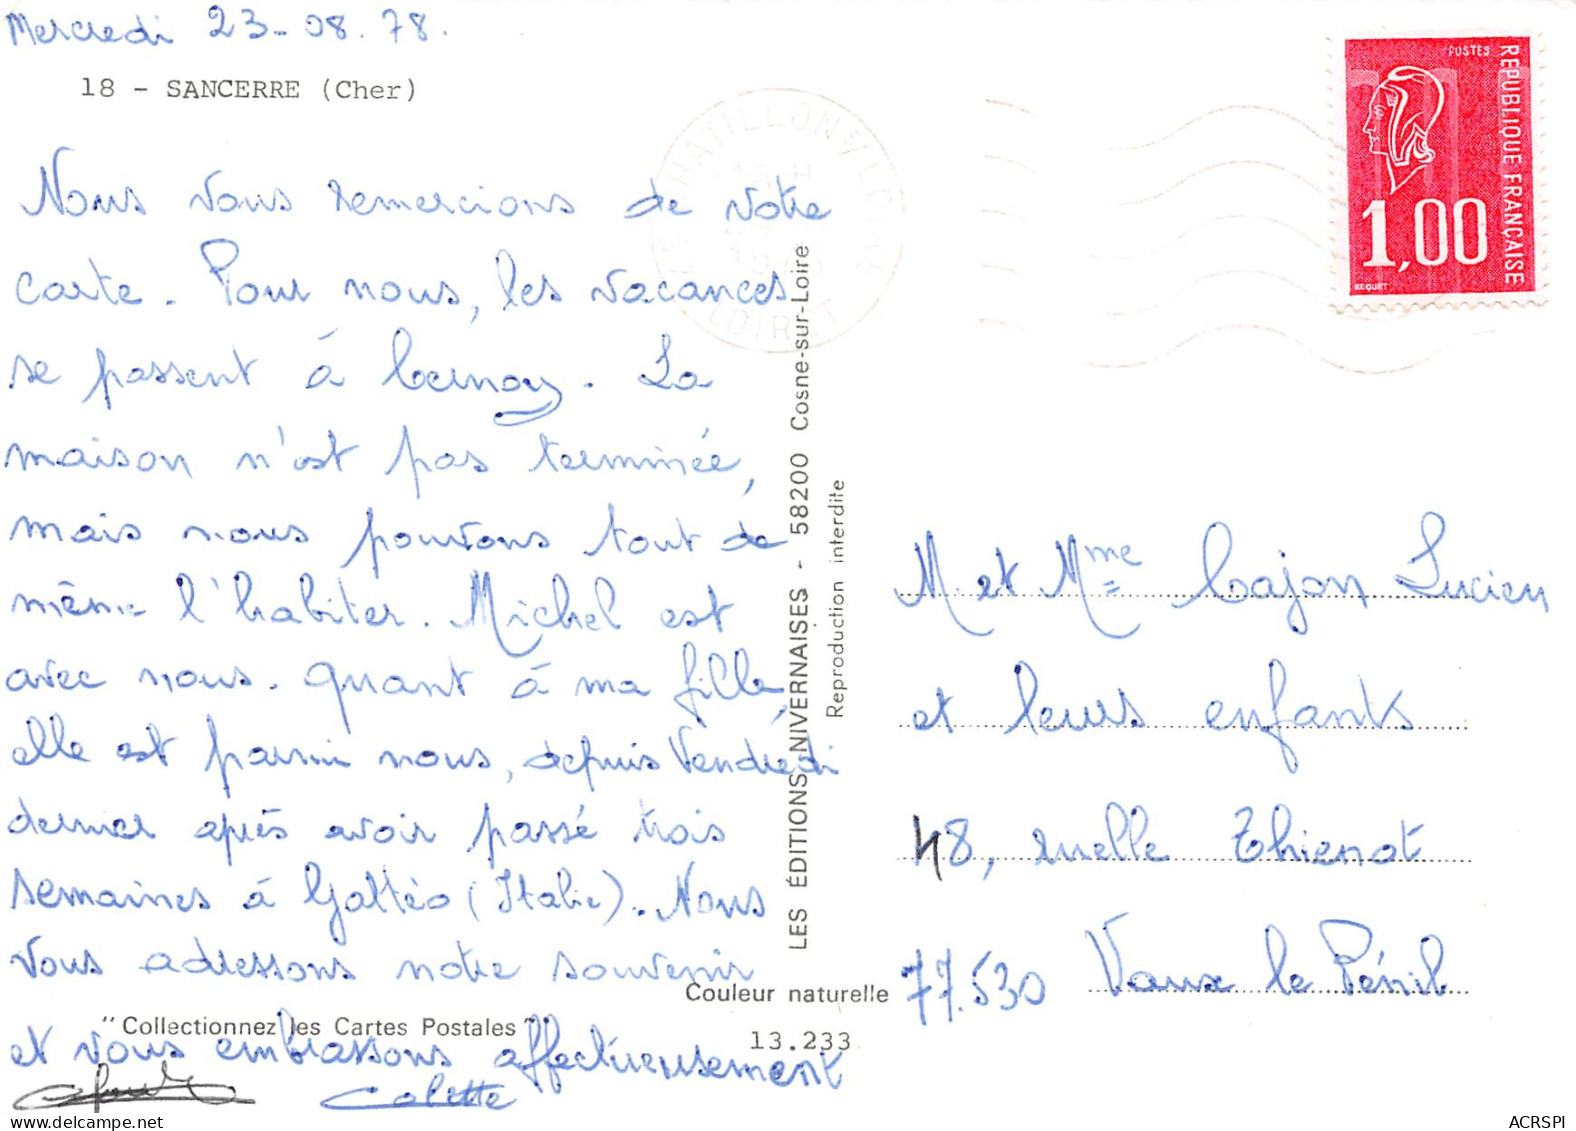 Mercredi 23-08.78.
18 - SANCERRE (Cher)
Nous vous remercions de votre
carte. Pour nous, les vacances
se passent à
. La
maison n'est pas terminée,
mais nous pouvons tout de
même l'habiter. Michel est
avec nous. Quant à ma fille,
elle est parmi nous, depuis Vendredi
dernier après avoir passé trois
semaines à Gattéo (Italie). Nous
vous adressons notre souvenir
et vous embrassons affectueusement
Colette
"Collectionnez les Cartes Postales"
Couleur naturelle
13.233
LES ÉDITIONS NIVERNAISES - 58200 Cosne-sur-Loire
Reproduction interdite
CHATILLON S/ LOIRE
LOIRET
POSTES
REPUBLIQUE FRANÇAISE
1,00
BEQUET
M. et Mme Cajon Lucien
et leurs enfants
48, ruelle Thienot
77.530 Vaux le Pénil
delcampe.net
ACRSPI